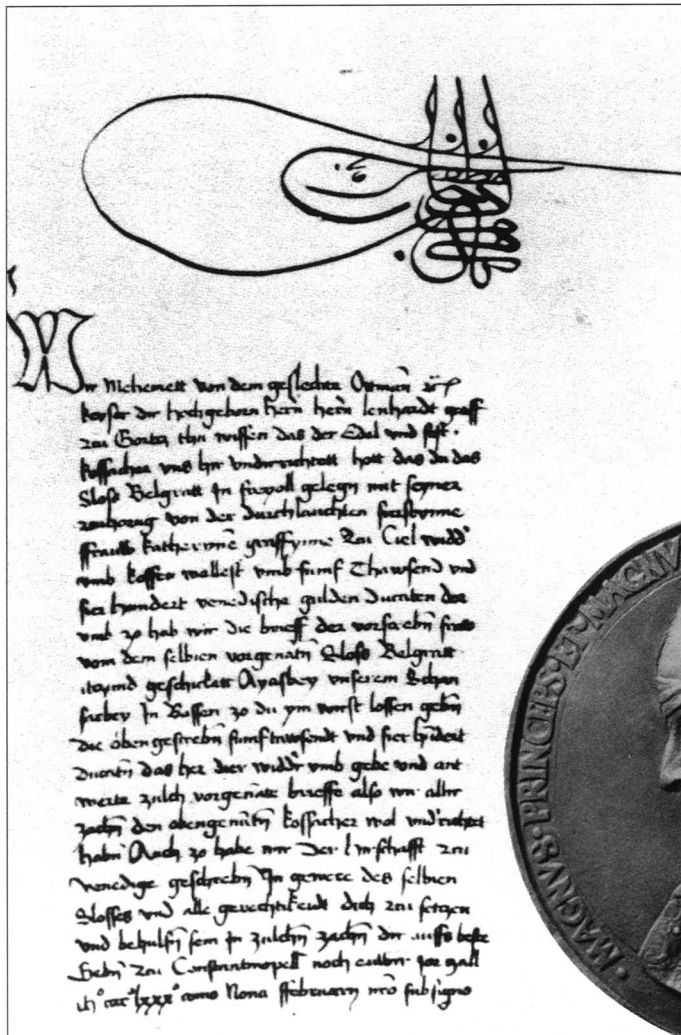 Wir Mehemett von dem geslechte Ottman
keyser dir hochgeborn hern hern lenhardt graff
zcu Gortz thu wissen das der Edel und fest
kossacher uns hir undirrichtett hott das du das
Sloss Belgratt In friyoll gelegn mit seyner
von der durchlauchten furstynne
ffraulb katheryne graffynne zcu Ciel widd
umb koffen wellest umb funf Thawsend und
fier hundert venedische gulden Ducaten dor
umb zo hab wir die brieff der frau
von dem selbien vorgenatn Sloss Belgratt
geschickett Ayasbey unserem Schan
In Bossen zo du ym vorst lossen gebn
die obengeschrebn funftawsendt und fier hudert
Ducatn das her dier widdr umb gebe und ant
werte zulch vorgenate brieffe also wir aller
zachn den obengenutn kossacher wol undirrichtet
habn Auch zo habe wir Der hirschafft zcu
venedige geschrebn In gewere des selbien
Slosses und alle gerechtikeudt dich zcu setzen
und behulfn sein In zulchn zachn dir uffs beste
Gebn zcu Constantinopell noch unsir jor zall
lxxx Nona ffebruary nro sub signo
MAGNVS·PRINCEPS·ET·MAGNV